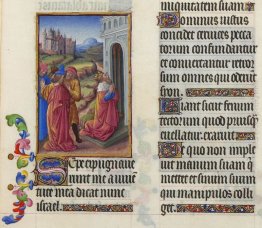 Sepe expugnaue
runt me a iuuen
tute mea dicat nunc
israel.
iniquitatem suam.
Dominus iustus
concidet ceruices pecca
torum confundantur
et conuertantur retror
sum omnes qui oderunt
syon.
Fiant sicut fenum
tectorum quod priusq̄
euellatur exaruit
De quo non imple
uit manum suam qui
metet et sinum suum
qui manipulos colli
get.